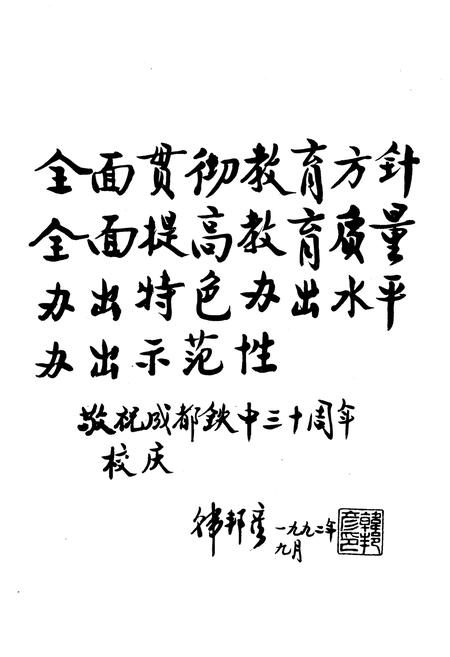 全面贯彻教育方针
全面提高教育质量
办出特色办出水平
办出示范性
敬祝成都鉄中三十周年
校庆
韩邦彦 一九九二年
九月
韓邦
彦印